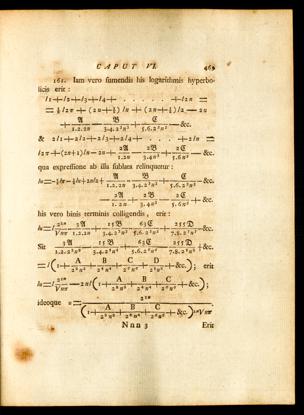 CAPUT VI. 469
161. Iam vero sumendis his logarithmis hyperbo-
licis erit:
l1+l2+l3+l4+ . . . . . +l2n =
= ½l2π + (2n+½)ln + (2n+½)l2 − 2n
+ 𝔄/1.2.2n − 𝔅/3.4.2³n³ + ℭ/5.6.2⁵n⁵ − &c.
& 2l1+2l2+2l3+2l4 . . . . . +2ln =
l2π+(2n+1)ln−2n+ 2𝔄/1.2n − 2𝔅/3.4n³ + 2ℭ/5.6n⁵ − &c.
qua expressione ab illa sublata relinquetur:
+ 𝔄/1.2.2n − 𝔅/3.4.2³n³ + ℭ/5.6.2⁵n⁵ − &c.
− 2𝔄/1.2n + 2𝔅/3.4n³ − 2ℭ/5.6n⁵ + &c.
his vero binis terminis colligendis, erit:
lu=l 2²ⁿ/Vnπ − 3𝔄/1.2.2n + 15𝔅/3.4.2³n³ − 63ℭ/5.6.2⁵n⁵ + 255𝔇/7.8.2⁷n⁷ − &c.
Sit 3𝔄/1.2.2²n² − 15𝔅/3.4.2⁴n⁴ + 63ℭ/5.6.2⁶n⁶ − 255𝔇/7.8.2⁸n⁸ + &c.
= l(1+ A/2²n² + B/2⁴n⁴ + C/2⁶n⁶ + D/2⁸n⁸ + &c.); erit
lu=l 2²ⁿ/Vnπ − 2nl(1+ A/2²n² + B/2⁴n⁴ + C/2⁶n⁶ + &c.);
ideoque u= 2²ⁿ/(1+ A/2²n² + B/2⁴n⁴ + C/2⁶n⁶ + &c.)²ⁿVnπ
Nnn 3 Erit